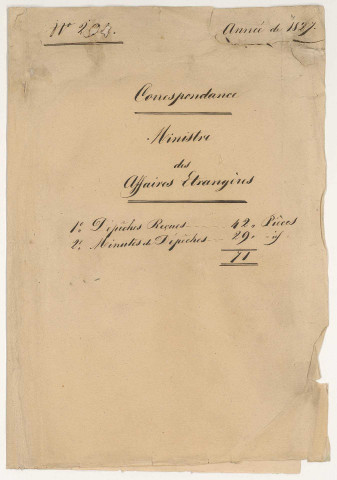 Nº
Année de 18
Correspondance
Ministre
des
Affaires Etrangères
1º Dépêches Reçues 42. Pièces
2º Minutes de Dépêches 29. id
71